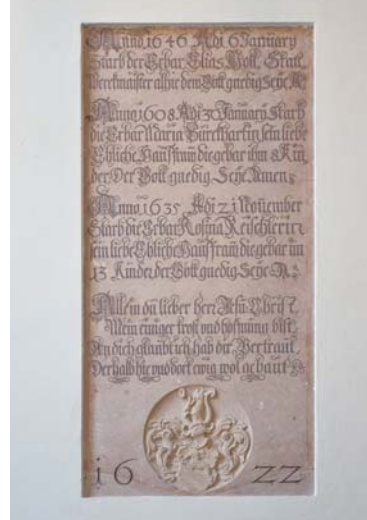 Anno 1646 Adi 6 January
Starb der Erbar Elias Holl, Statt
Werckmaister alhie dem Gott gnedig Seye A:
Anno 1608 Adi 31 January Starb
die Erbar Maria Burckhartin sein liebe
Ehliche Hausfraw die gebar ihm 8 Kin
der Der Gott gnedig Seye Amen:
Anno 1635 Adi 21 November
Starb die Erbar Rosina Reischlerin
sein liebe Ehliche Hausfraw die gebar im
13 Kinder der Gott gnedig Seye A:
Allein du lieber herr Jesu Christ
Mein einiger trost und hoffnung bist,
An dich glaubt ich hab dir Vertraut,
Derhalb hie und dort ewig wol gebaut
16 22